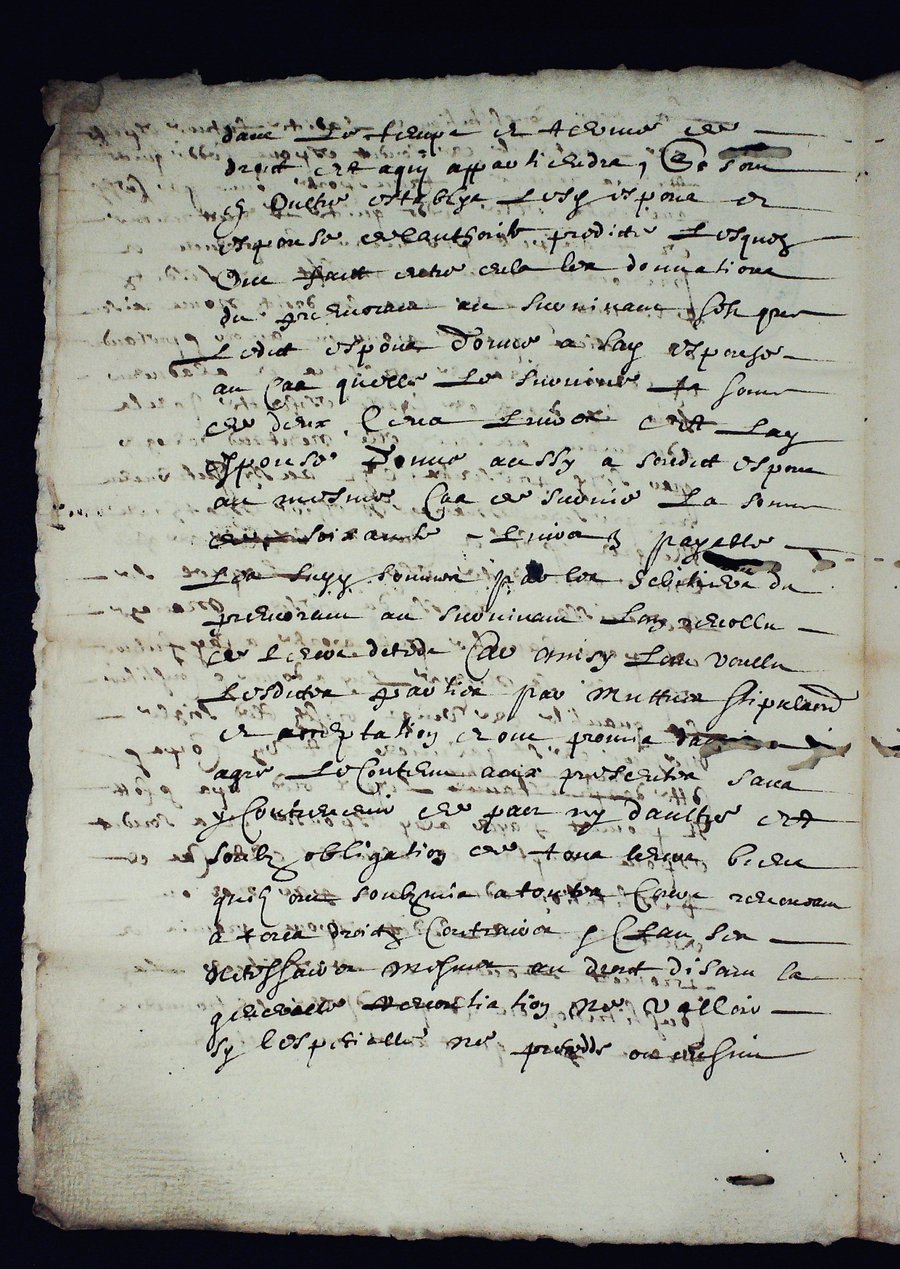 dans le temps et terme de
droict et a quy appartiendra, Et sont
Oultre establys lesd espoux et
espouse de lauthorite predicte Lesquelz
Ont faict entre eulx les donnations
du premourant au survivant scest que
Ledict espoux donne a lad espouse
au Cas quelle le survive la somme
de deux Cens livres et lad
espouse donne aussy a sondict espoux
au mesme Cas de survie La somme
de soixante livres payable
Les sommes par les heritiers du
premourant au survivant revollu
de deces Car ainsy Lont voullu
Lesdites parties par mutture stipulation
et acceptation et ont promis
agre Le Contenu aux presentes sans
y Contrevenir de part ny daultre et
soubz obligation de tous leurs biens
quilz ont soubzmis a toutes Cours renoncant
a tous droictz Contraires Clauses
necessaires mesmes au droict disant la
generalle renontiation ne valloir
sy lespetialle ne precede ou ensuit